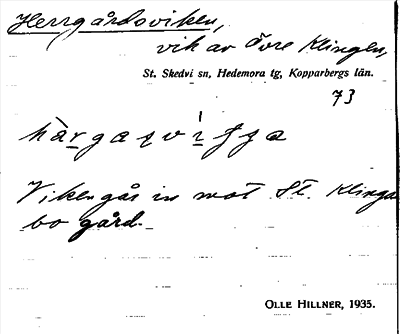 Herrgårdsviken,
vik av Övre Klingen,
St. Skedvi sn, Hedemora tg, Kopparbergs län.
73
Viken går in mot St. Klinga
bo gård.
OLLE HILLNER, 1935.